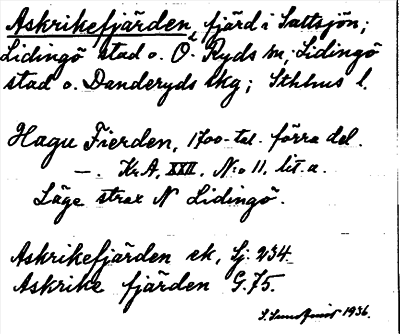 Askrikefjärden, fjärd i Saltsjön;
Lidingö stad o. Ö. Ryds sn, Lidingö
stad o. Danderyds skg; Sthlms l.
Hagu Fierden, 1700-tal. förra del.
—. Kr.A, XXII, N:o 11, lit. a.
Läge strax N Lidingö.
Askrikefjärden ek, Sj. 234
Askrike fjärden G. 75.
1936.